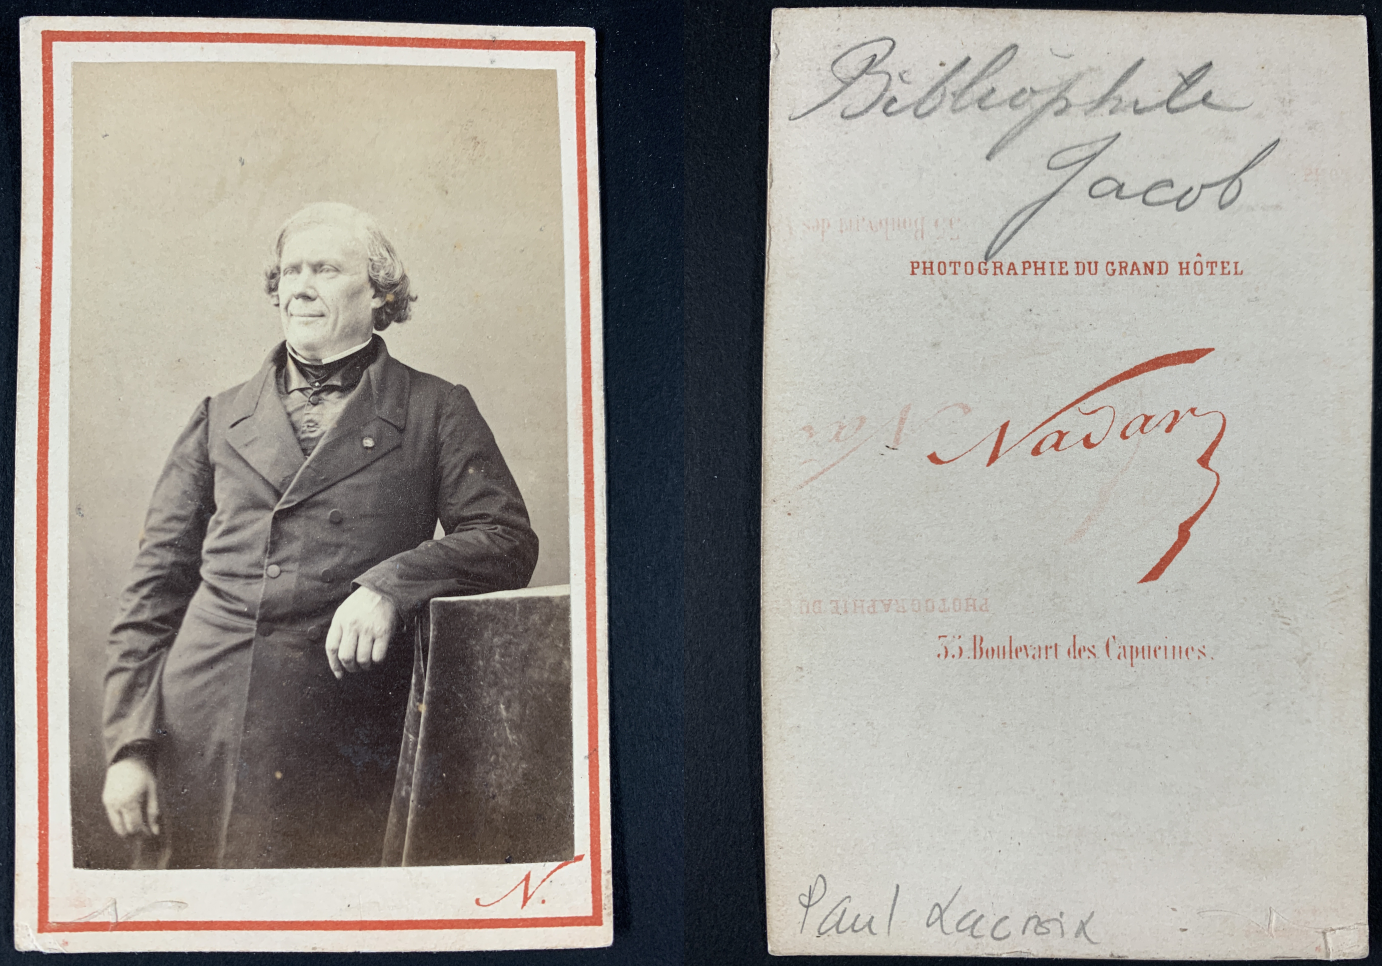 N.
Bibliophile
Jacob
PHOTOGRAPHIE DU GRAND HÔTEL
Nadar
35. Boulevart des Capucines.
Paul Lacroix